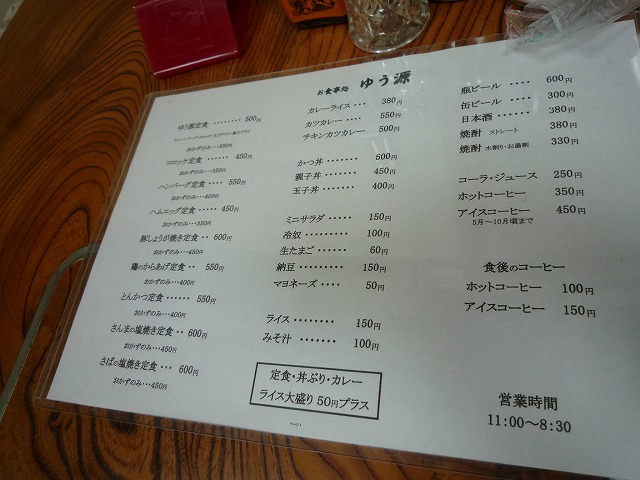 お食事処 ゆう源
ゆう源定食 ‥‥‥‥‥ 500円
おかずのみ･･･350円
コロッケ定食 ‥‥‥ 450円
おかずのみ･･･350円
ハンバーグ定食 ‥‥ 550円
おかずのみ･･･400円
ハムエッグ定食 ‥‥ 450円
おかずのみ･･･350円
豚しょうが焼き定食 ‥ 600円
おかずのみ･･･450円
鶏のからあげ定食 ‥ 550円
おかずのみ･･･400円
とんかつ定食 ‥‥‥ 550円
おかずのみ･･･400円
さんまの塩焼き定食 ‥ 600円
おかずのみ･･･450円
さばの塩焼き定食 ･･･ 600円
おかずのみ･･･450円
カレーライス ･･･ 380円
カツカレー ‥‥ 550円
チキンカツカレー 500円
かつ丼 ‥‥‥‥ 500円
親子丼 ‥‥‥‥ 450円
玉子丼 ‥‥‥‥ 400円
ミニサラダ ･････ 150円
冷奴 ･････････ 100円
生たまご ‥‥‥ 60円
納豆 ･････････ 150円
マヨネーズ ‥‥ 50円
ライス ‥‥‥‥ 150円
みそ汁 ･･･････ 100円
定食・丼ぶり・カレー
ライス大盛り 50円プラス
瓶ビール ‥‥ 600円
缶ビール ‥‥ 300円
日本酒 ‥‥‥ 380円
焼酎 ストレート 380円
焼酎 水割り・お湯割 330円
コーラ・ジュース 250円
ホットコーヒー 350円
アイスコーヒー 450円
5月～10月頃まで
食後のコーヒー
ホットコーヒー 100円
アイスコーヒー 150円
営業時間
11:00～8:30